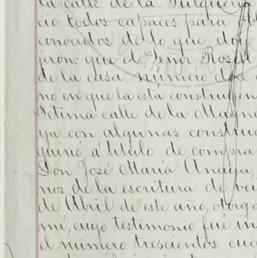 la calle de la Pulguería
cio: todos capaces para
conocidos de lo que doy
jeron: que
de la casa número dos
no en que la está construyen
Sétima calle de la Magna
ya con algunas construc
quirió á título de compra
Don José María Anaya,
nos de la escritura de vei
de Abril de este año, otorga
mí, cuyo testimonio fué in
el número trescientos cua